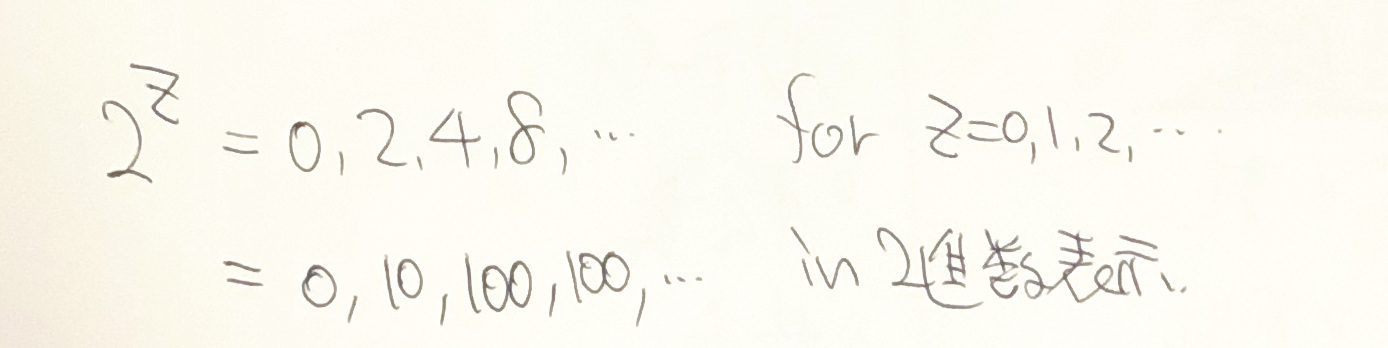 2^z = 0, 2, 4, 8, ... for z=0, 1, 2, ...
= 0, 10, 100, 100, ... in 2進数表示.